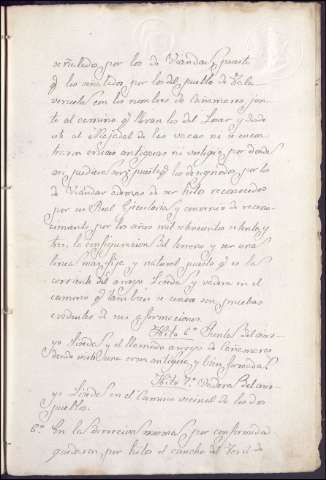 señalados, por los de Viandar, puesto
q los señalados por los del pueblo de Tala
veruela con los nombres de Cañameros, jun
to al camino q llevan los del Losar y dado
ob al Majadal de las vacas no se encon
traron indicios antiguos ni vestigio por donde
puesto q los designados, por los
de Viandar ademas de ser hitos reconocidos
por un Real Ejecutoria y convenio de recono
cimiento, por los años mil ochocientos setenta y
tres, la configuracion del terreno y ser una
linea mas fija y natural puesto q es la
corriente del arroyo Linde y vadera en el
camino q tambien se cruza son pruebas
evidentes de sus afirmaciones.
Hito 6.º Puente del arro-
yo Linde y el llamado arroyo de Cañameros
donde existe una cruz antigua, y bien formada
Hito 7.º Vadera del arro-
yo Linde en el Camino vecinal de los dos
pueblos.
8.º En la direccion misma, por conformidad
quedaron, por hito el cancho del